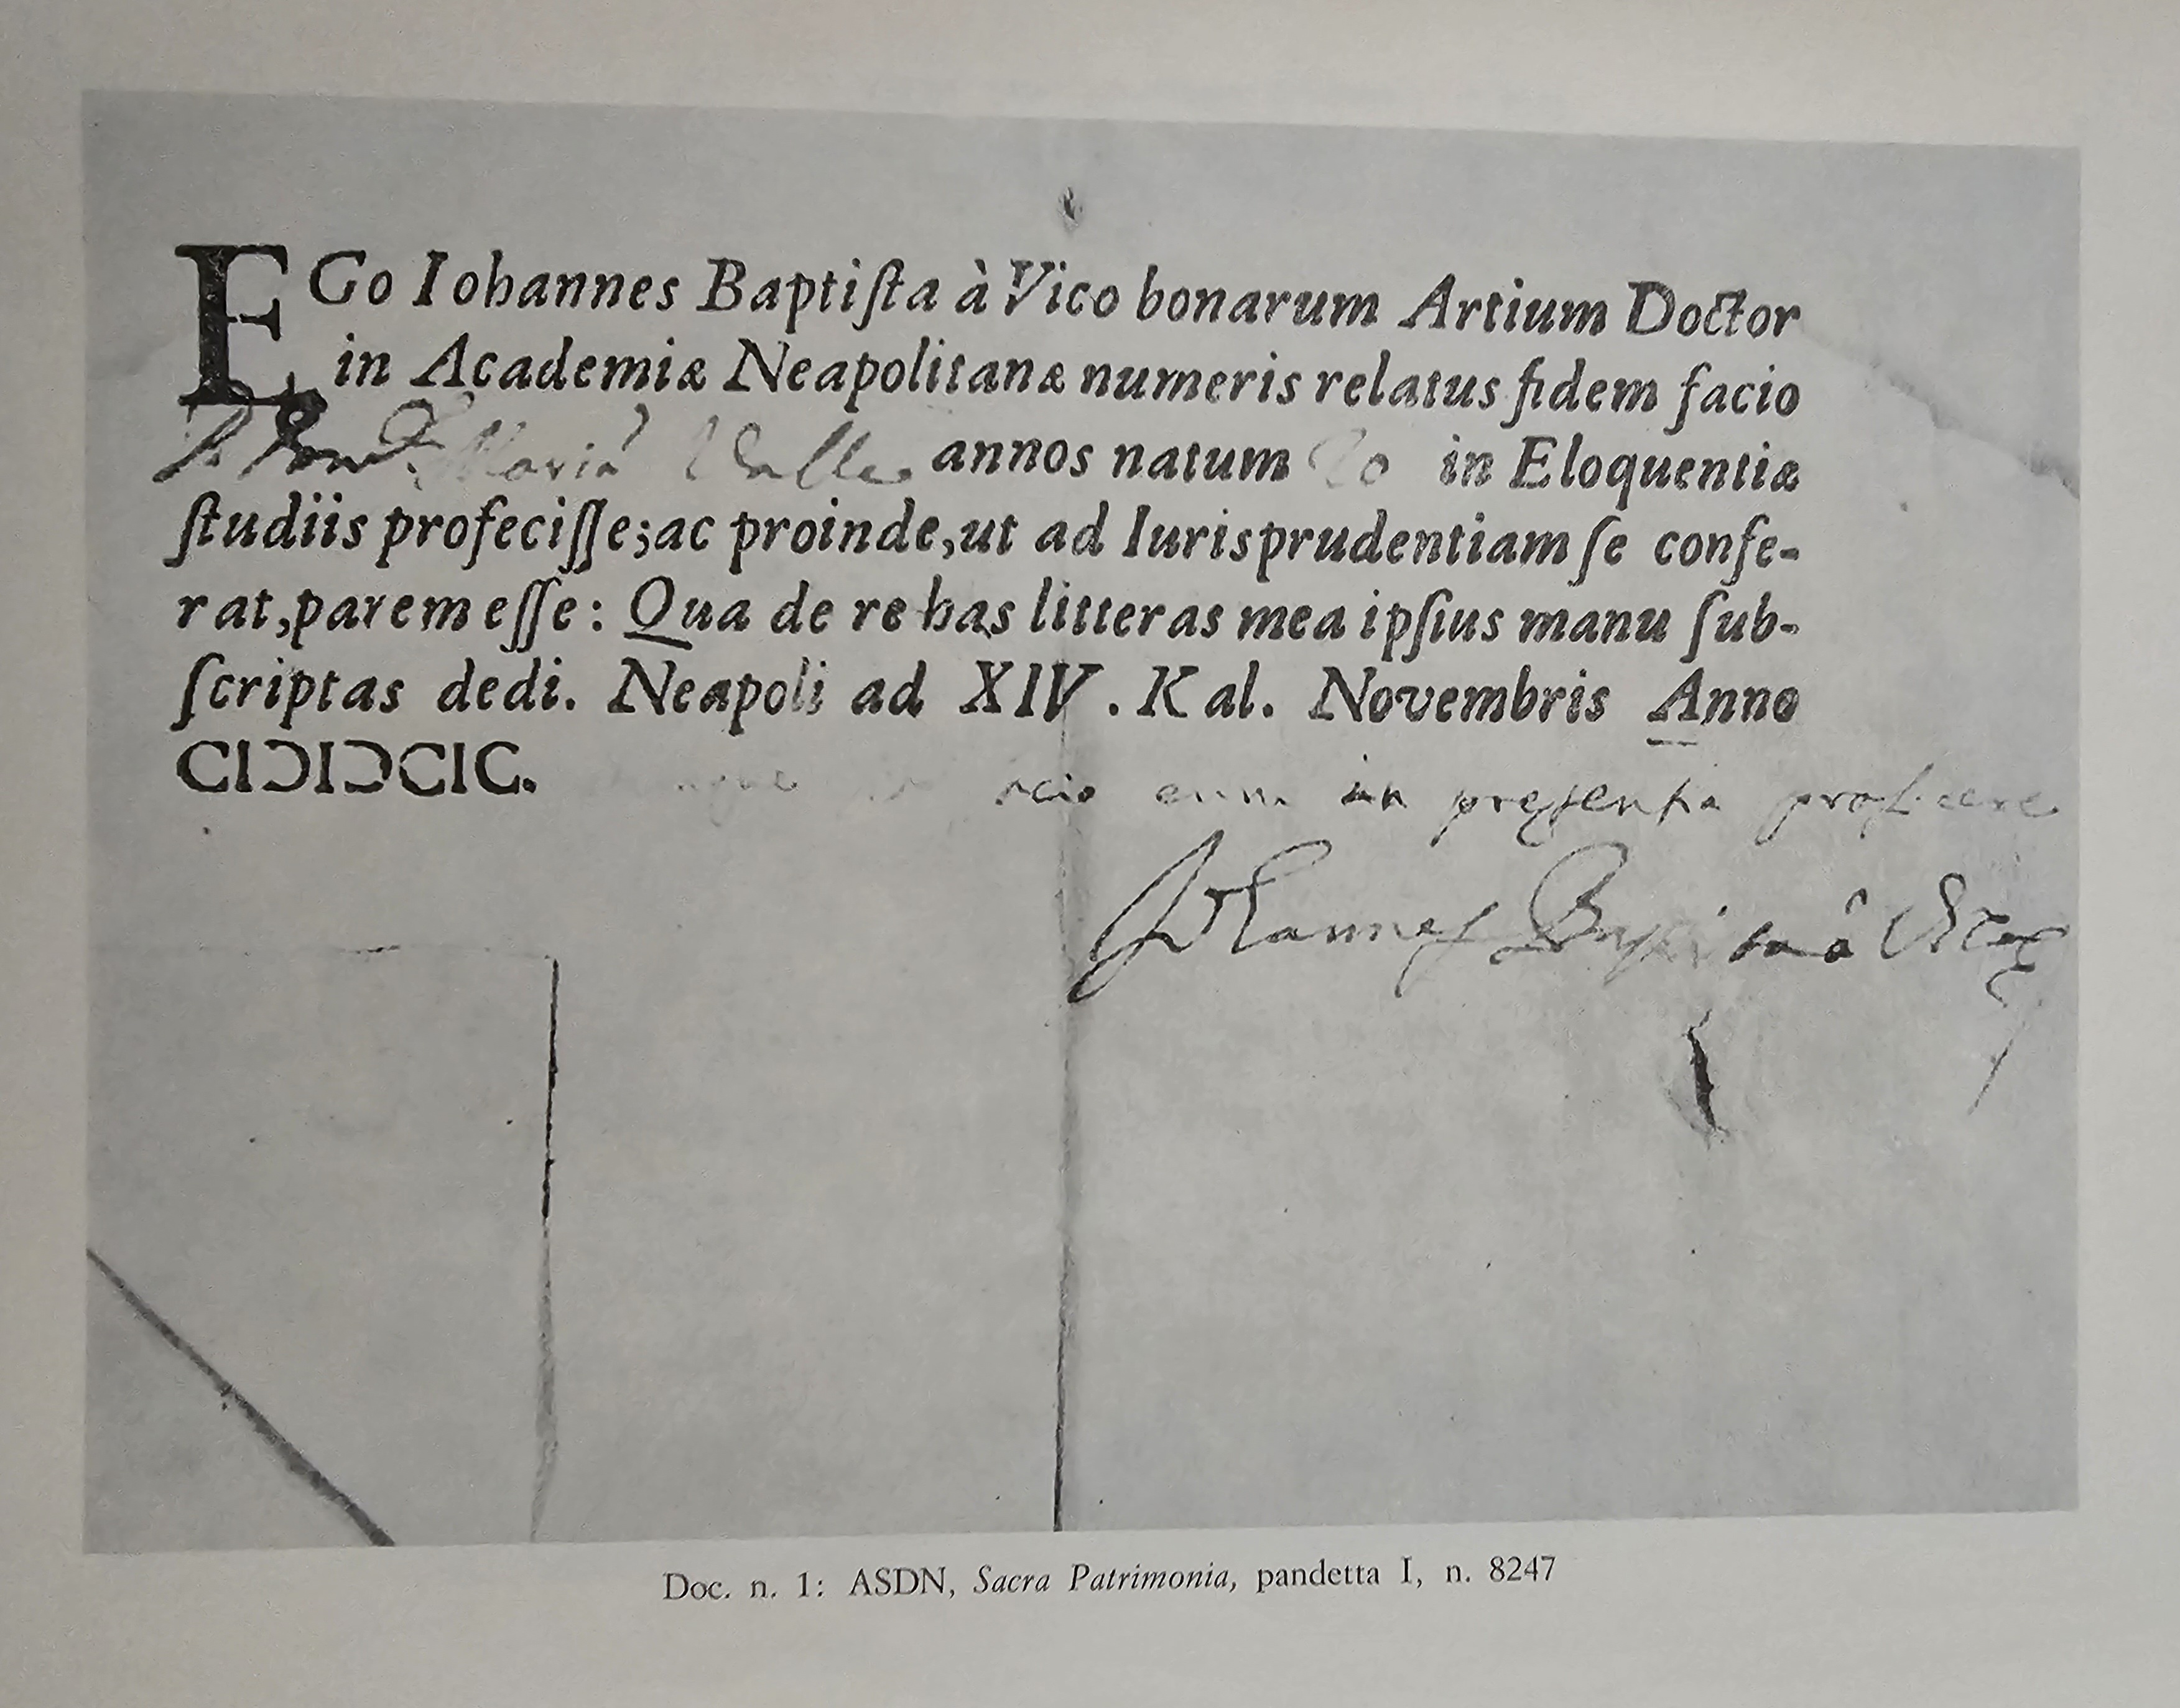 EGo Iohannes Baptiſta à Vico bonarum Artium Doctor
in Academiæ Neapolitanæ numeris relatus fidem facio
Maria Valle annos natum 20 in Eloquentiæ
ſtudiis profeciſſe; ac proinde, ut ad Iurisprudentiam ſe confe-
rat, parem eſſe: Qua de re has litteras mea ipſius manu ſub-
ſcriptas dedi. Neapoli ad XIV. Kal. Novembris Anno
CIƆIƆCIC.
scio eum in preſentia proficere
Iohannes Baptista à Vico
Doc. n. 1: ASDN, Sacra Patrimonia, pandetta I, n. 8247